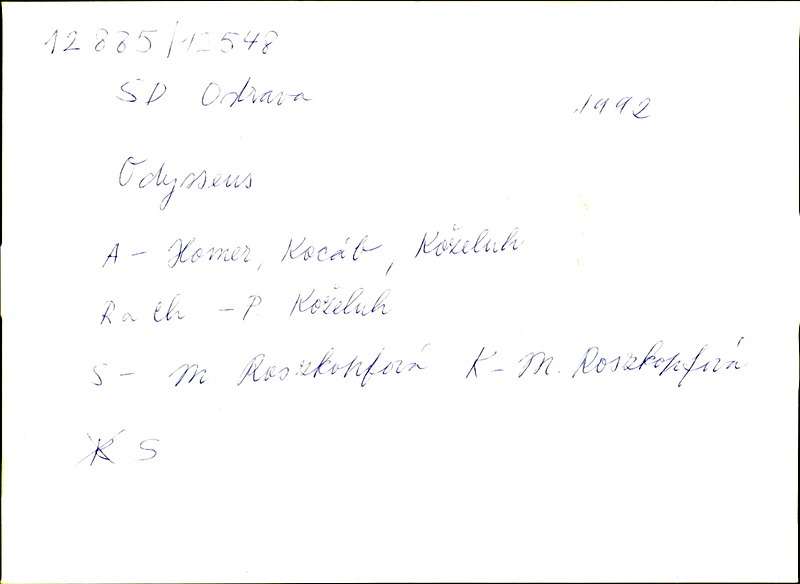 12 885/12548
SD Ostrava 1992
Odysseus
A - Homer, Kocáb, Koželuh
R a Ch - P. Koželuh
S - M Roszkopfová K - M. Roszkopfová
K S